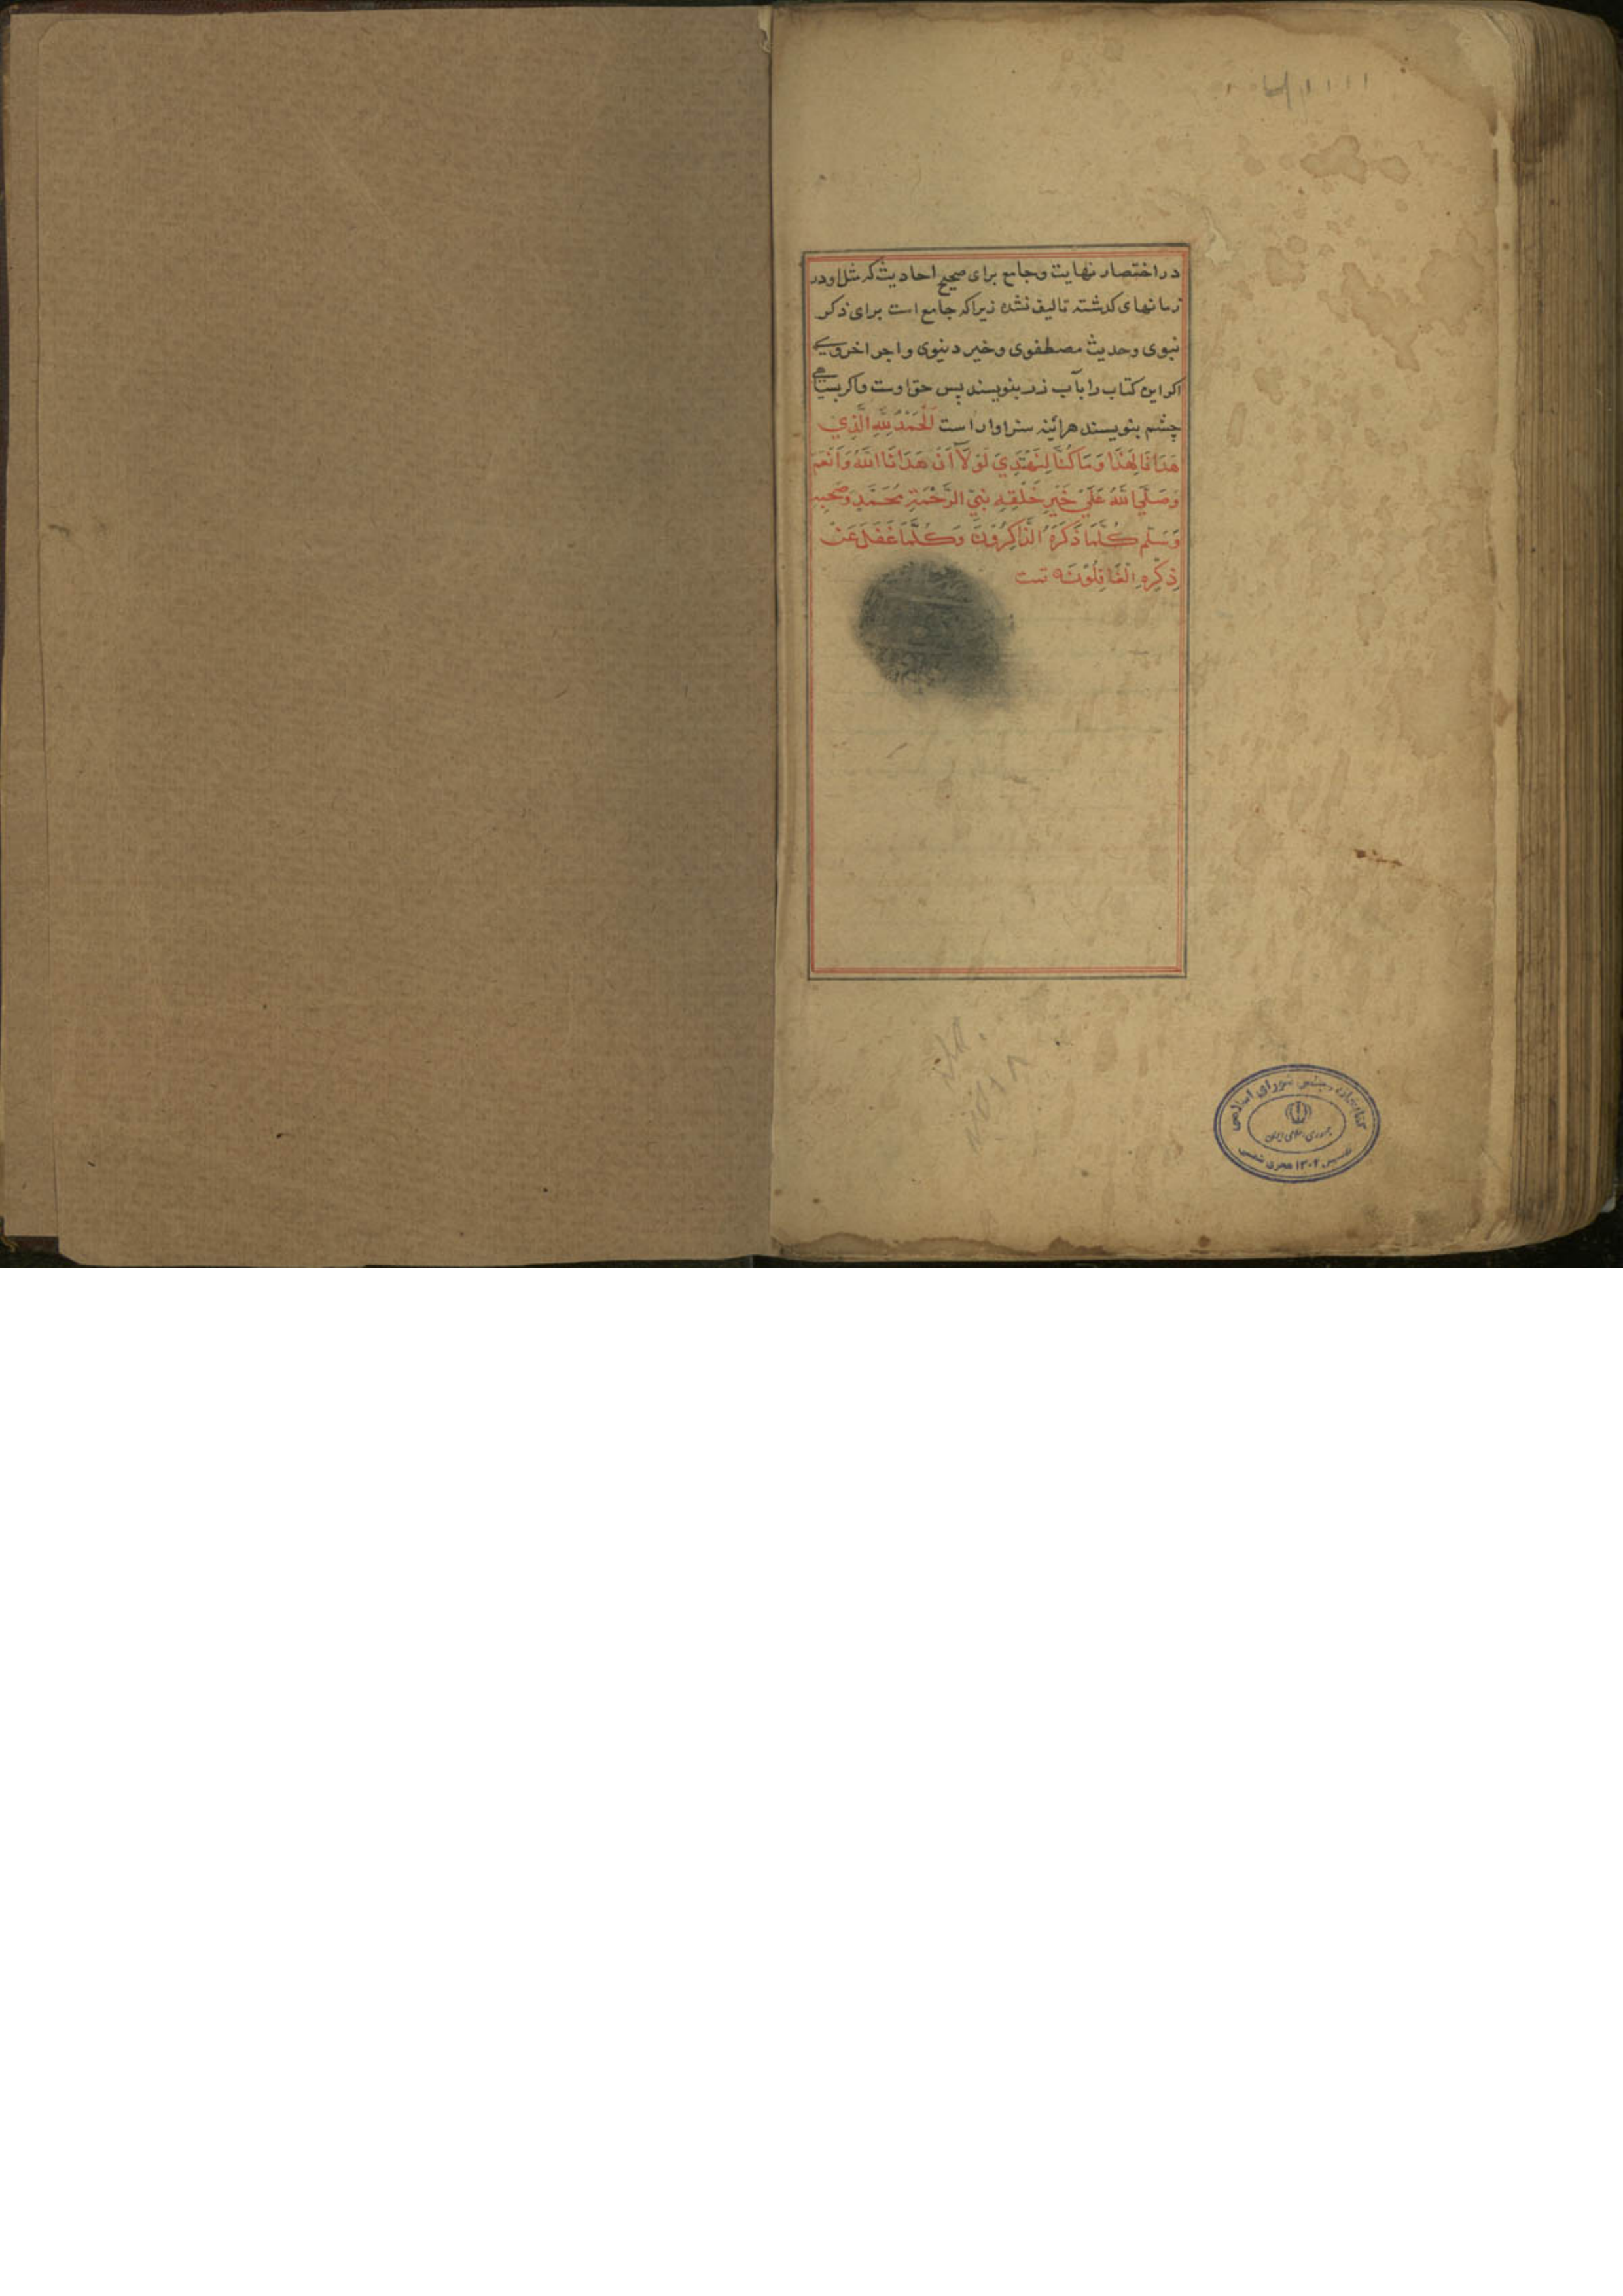 در اختصار نهایت و جامع برای صحیح احادیث که مثل او در
زمانهای کذشته تالیف نشده زیرا که جامع است برای ذکر
نبوی و حدیث مصطفوی و خیر دینوی و اجر اخروی
اکر این کتاب را بآب زر بنویسند پس حق اوست و اکر بسیاهی
چشم بنویسند هرائینه سزاوار است اَلْحَمْدُ لِلّٰهِ الَّذِي
هَدَانَا لِهٰذَا وَمَا كُنَّا لِنَهْتَدِيَ لَوْلَا أَنْ هَدَانَا اللّٰهُ وَاَنْعَمَ
وَصَلَّى اللّٰهُ عَلٰى خَيْرِ خَلْقِهِ نَبِيِّ الرَّحْمَةِ مُحَمَّدٍ وَصَحْبِهِ
وَسَلَّمَ كُلَّمَا ذَكَرَهُ الذَّاكِرُوْنَ وَكُلَّمَا غَفَلَ عَنْ
ذِكْرِهِ الْغَافِلُوْنَ تمت
کتابخانه مجلس شورای اسلامی
جمهوری اسلامی ایران
تاسیس ۱۳۰۲ هجری شمسی